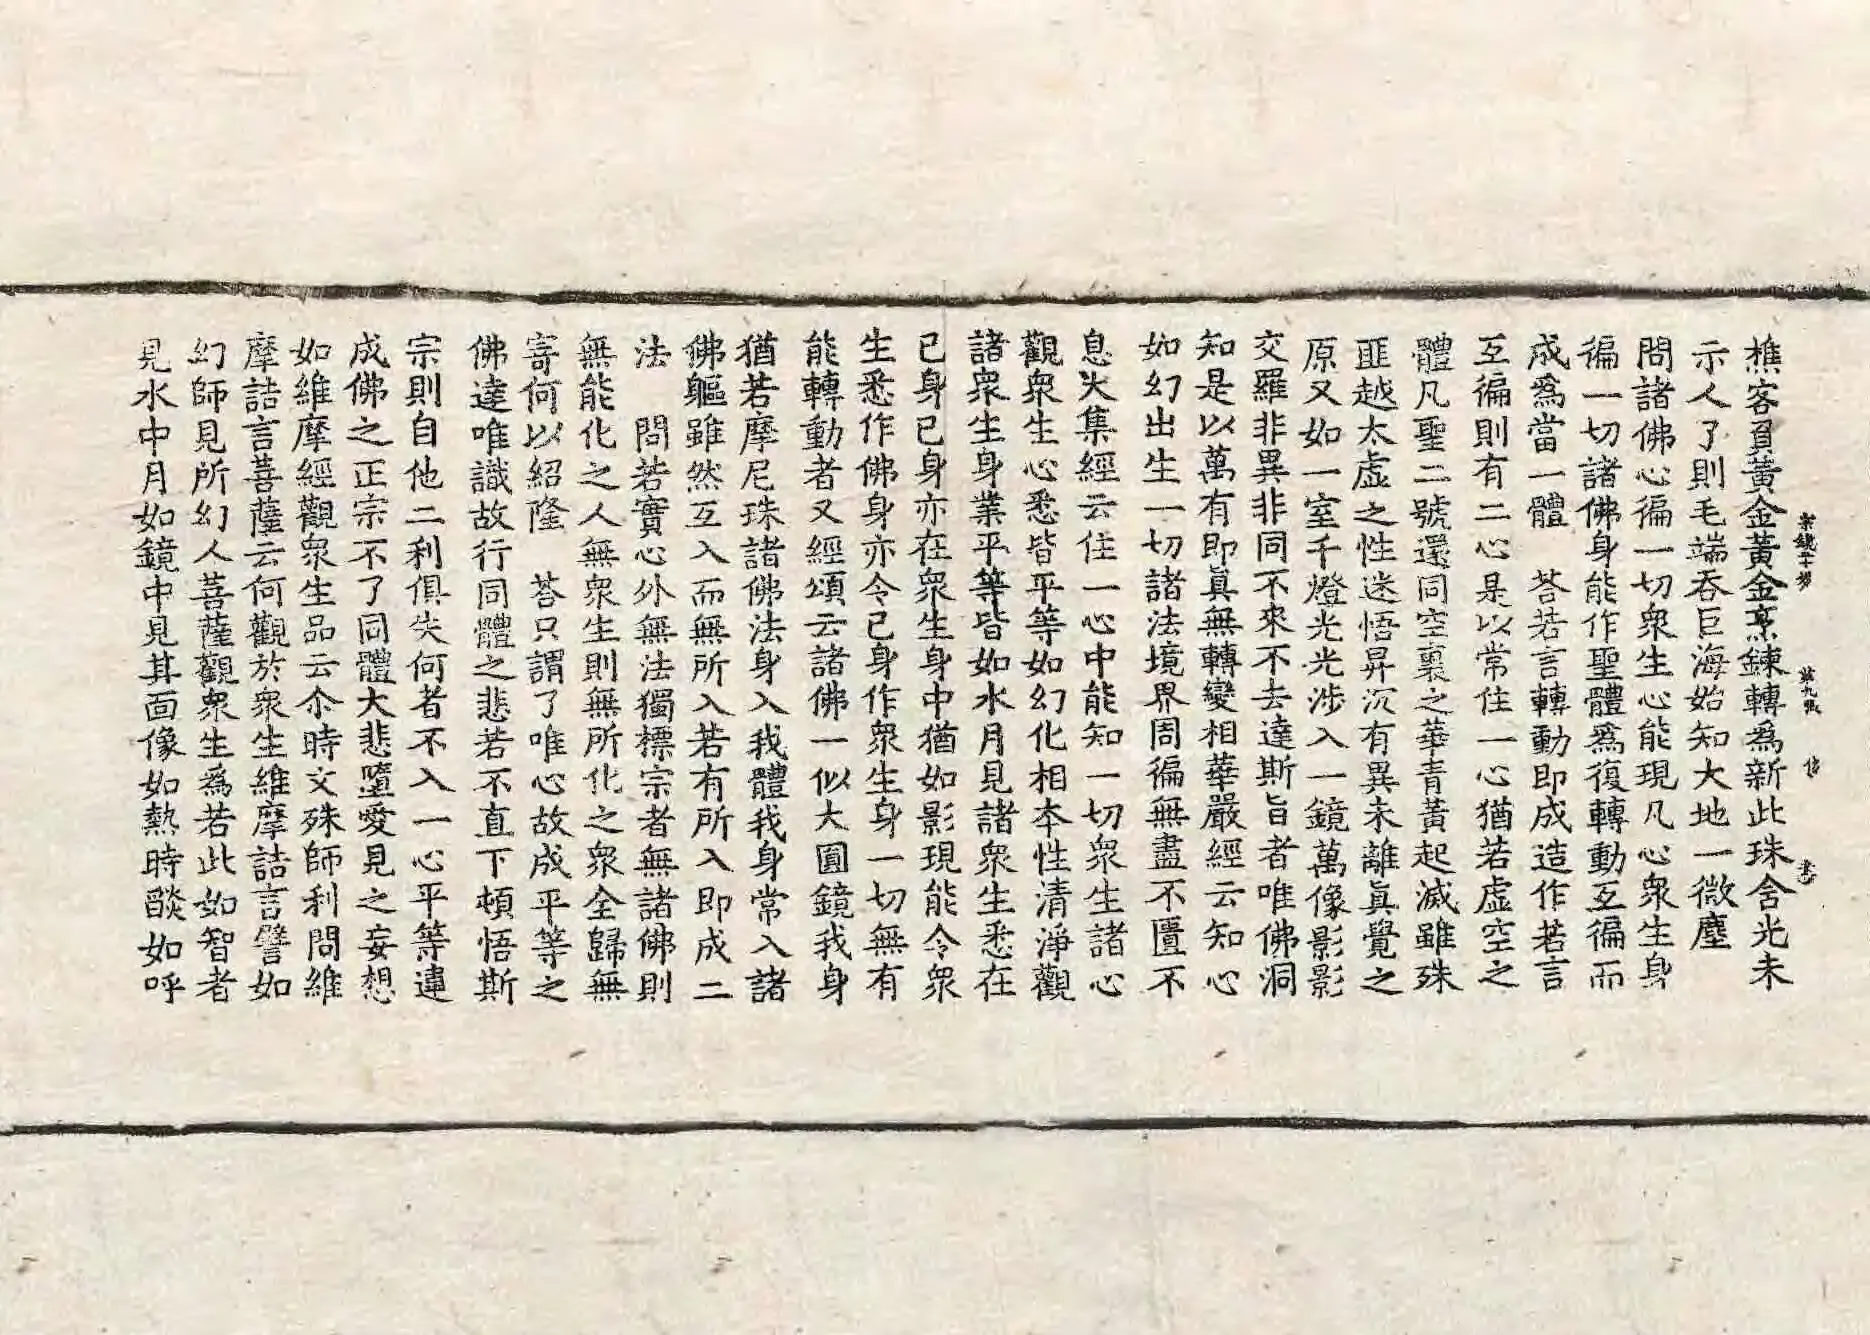 樵客負黃金黃金烹鍊轉為新此珠含光未
宗鏡十六 第九張 俊
示人了則毛端吞巨海始知大地一微塵
問諸佛心徧一切衆生心能現凡心衆生身
徧一切諸佛身能作聖體為復轉動互徧而
成為當一體 荅若言轉動即成造作若言
互徧則有二心是以常住一心猶若虛空之
體凡聖二號還同空裏之華青黃起滅雖殊
匪越太虛之性迷悟昇沉有異未離真覺之
原又如一室千燈光光涉入一鏡萬像影影
交羅非異非同不來不去達斯旨者唯佛洞
知是以萬有即真無轉變相華嚴經云知心
如幻出生一切諸法境界周徧無盡不匱不
息大集經云住一心中能知一切衆生諸心
觀衆生心悉皆平等如幻化相本性清淨觀
諸衆生身業平等皆如水月見諸衆生悉在
已身已身亦在衆生身中猶如影現能令衆
生悉作佛身亦令已身作衆生身一切無有
能轉動者又經頌云諸佛一似大圓鏡我身
猶若摩尼珠諸佛法身入我體我身常入諸
佛軀雖然互入而無所入若有所入即成二
法 問若實心外無法獨標宗者無諸佛則
無能化之人無衆生則無所化之衆全歸無
寄何以紹隆 荅只謂了唯心故成平等之
佛達唯識故行同體之悲若不直下頓悟斯
宗則自他二利俱失何者不入一心平等違
成佛之正宗不了同體大悲墮愛見之妄想
如維摩經觀衆生品云尒時文殊師利問維
摩詰言菩薩云何觀於衆生維摩詰言譬如
幻師見所幻人菩薩觀衆生為若此如智者
見水中月如鏡中見其面像如熱時燄如呼